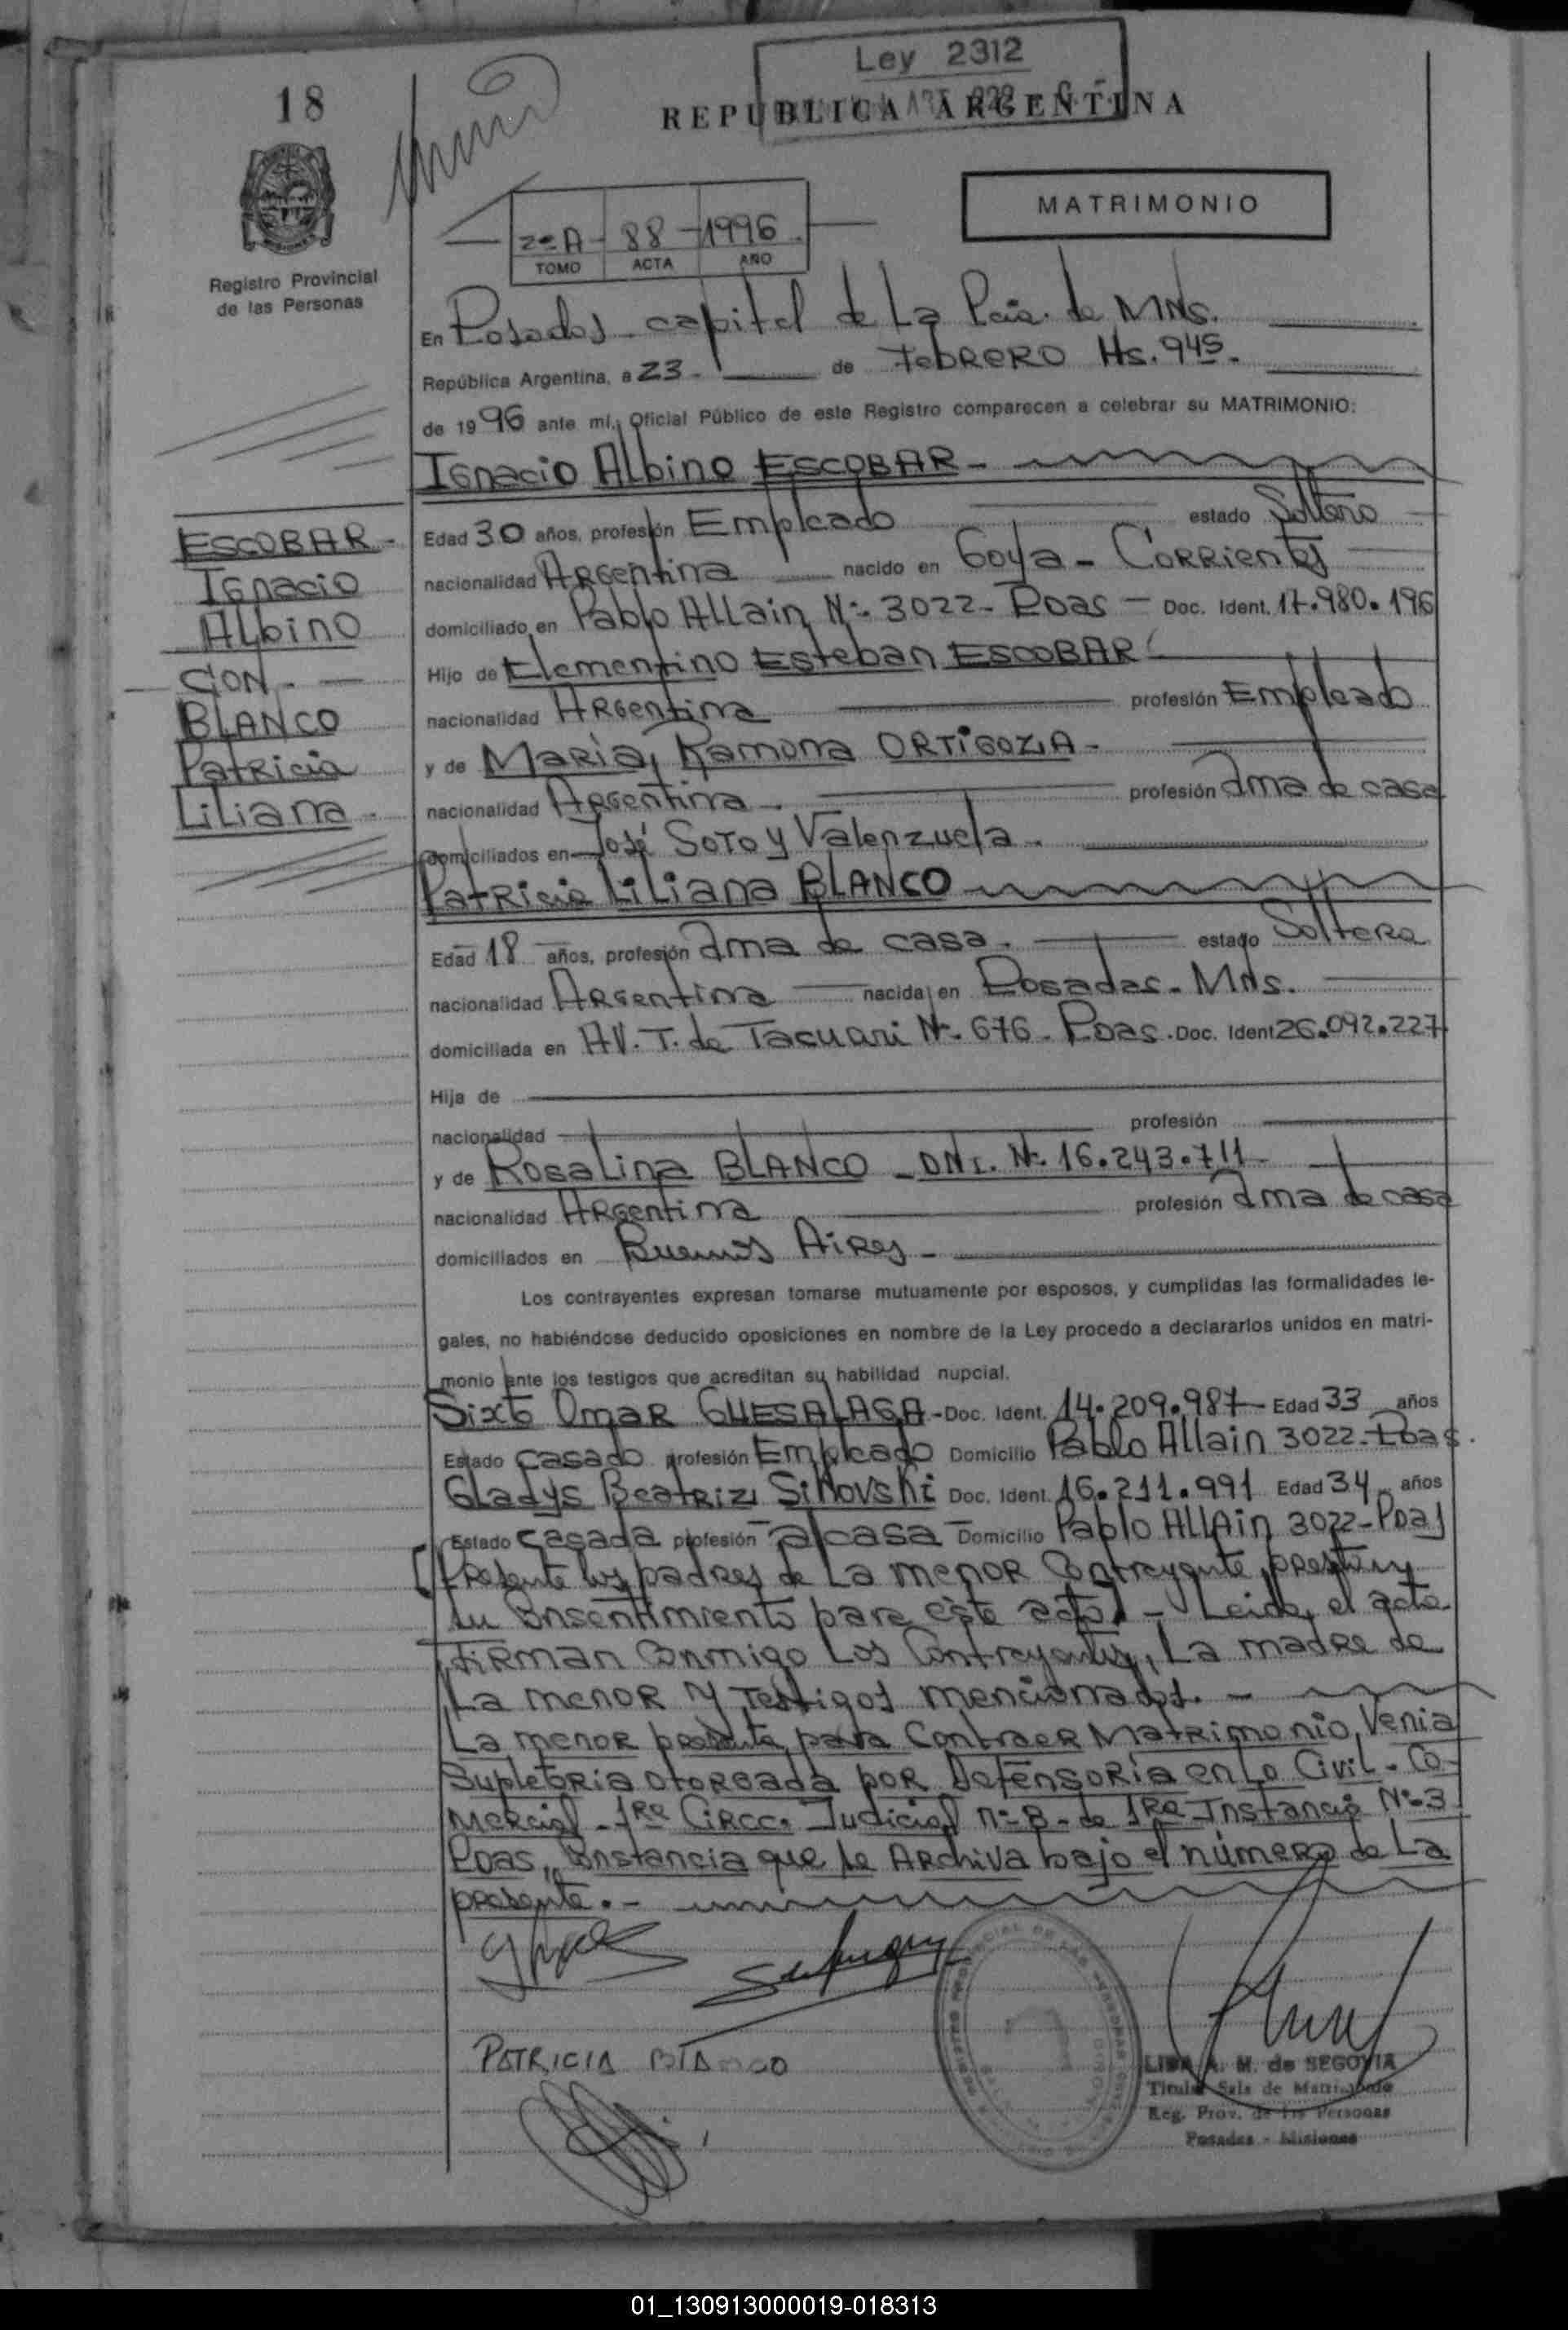 Ley 2312
18
REPUBLICA ARGENTINA
MATRIMONIO
2º A - 88 - 1996
TOMO ACTA AÑO
Registro Provincial
de las Personas
En Posadas capital de La Pcia. de MNs.
República Argentina, a 23 - de Febrero Hs. 945.
de 1996 ante mí, Oficial Público de este Registro comparecen a celebrar su MATRIMONIO:
Ignacio Albino ESCOBAR -
Edad 30 años, profesión Empleado estado Soltero
nacionalidad Argentina nacido en Goya - Corrientes
domiciliado en Pablo Allain Nº 3022 - Pdas - Doc. Ident. 17.980.196
Hijo de Clementino Esteban ESCOBAR
nacionalidad Argentina profesión Empleado
y de María Ramona ORTIGOZA -
nacionalidad Argentina - profesión Ama de casa
domiciliados en José Soto y Valenzuela.
ESCOBAR -
Ignacio
Albino
CON -
BLANCO
Patricia
Liliana -
Patricia Liliana BLANCO
Edad 18 años, profesión Ama de casa. estado Soltera
nacionalidad Argentina nacida en Posadas - MNs.
domiciliada en AV. T. de Tacuari Nº 676 - Pdas. Doc. Ident 26.092.227
Hija de
nacionalidad profesión
y de Rosalina BLANCO - DNI. Nº 16.243.711
nacionalidad Argentina profesión Ama de casa
domiciliados en Buenos Aires -
Los contrayentes expresan tomarse mutuamente por esposos, y cumplidas las formalidades le-
gales, no habiéndose deducido oposiciones en nombre de la Ley procedo a declararlos unidos en matri-
monio ante los testigos que acreditan su habilidad nupcial.
Sixto Omar GUESALAGA - Doc. Ident. 14.209.987 - Edad 33 años
Estado casado profesión Empleado Domicilio Pablo Allain 3022 - Pdas.
Gladys Beatriz Sikovski Doc. Ident. 16.211.991 Edad 34 años
Estado casada profesión a/casa Domicilio Pablo Allain 3022 - Pdas
Presente los padres de La menor Contrayente, prestan
su Consentimiento para este acto. - Leida el acta
Firman Conmigo Los Contrayentes, La madre de
La menor y Testigos mencionados. -
La menor presenta para Contraer Matrimonio, Venia
Supletoria otorgada por Defensoría en Lo Civil - Co-
mercial - 1ra Circc. Judicial nº 8 - de 1ra Instancia Nº 3
Pdas, Constancia que se Archiva bajo el número de La
presente. -
PATRICIA BLANCO
LIDA A. M. de SEGOVIA
Titular Sala de Matrimonio
Reg. Prov. de las Personas
Posadas - Misiones
01_130913000019-018313